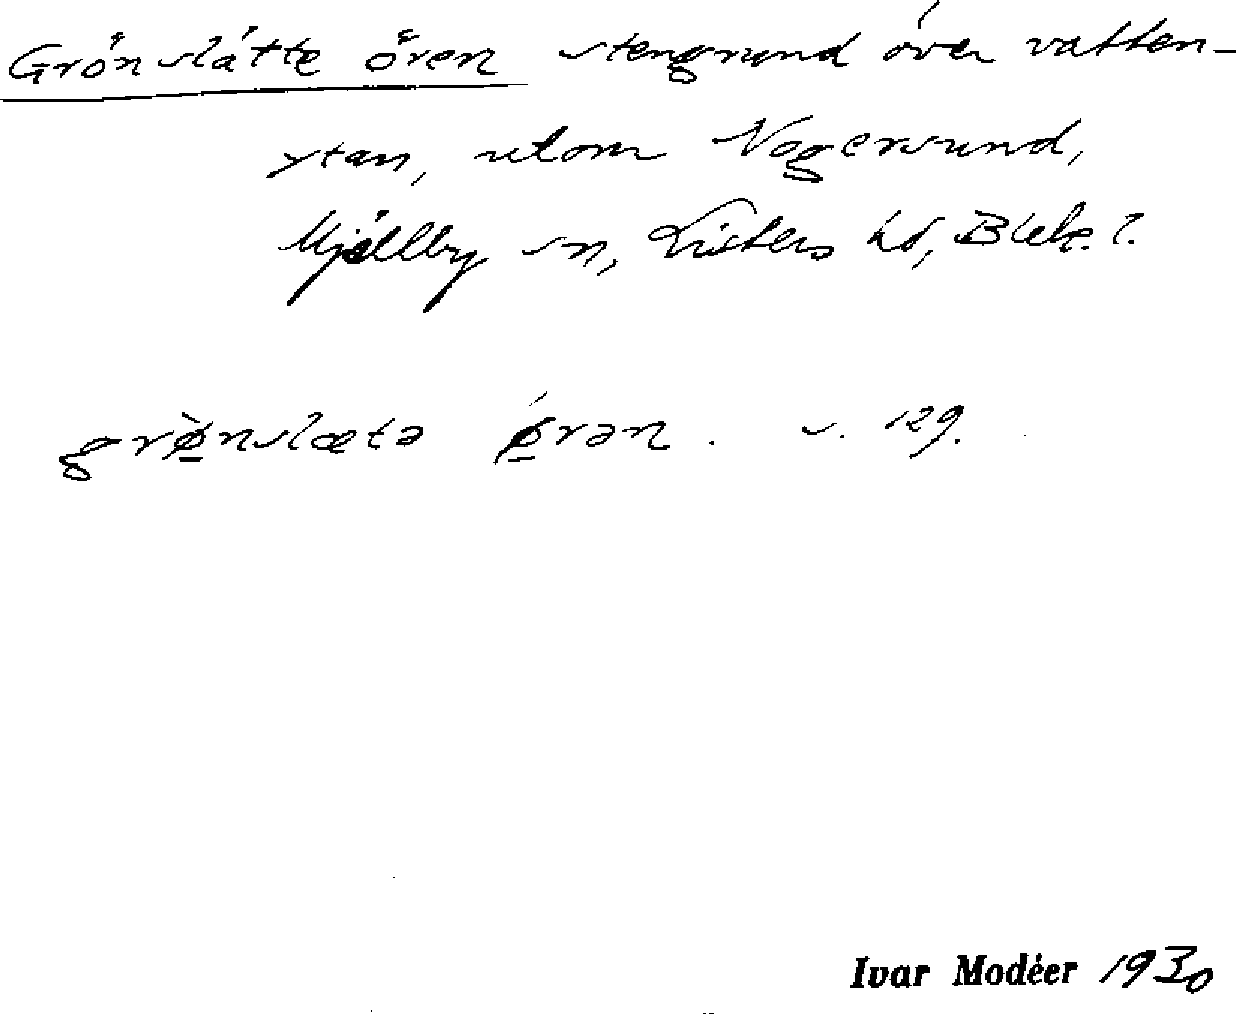 Grönslätte ören stengrund över vatten-
ytan, utom Nogersund,
Mjällby sn, Listers hd, Blek. l.
grø̀nslætə ǿrən . s. 129.
Ivar Modéer 1930